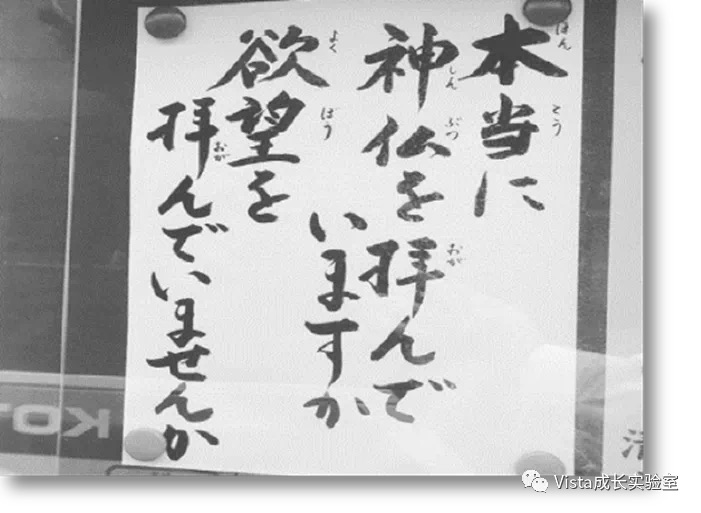 本当に
神仏を拝んで
いますか
欲望を
拝んでいませんか
ほん
とう
しん
ぶつ
おが
よく
ぼう
おが
KO
清
Vista成长实验室